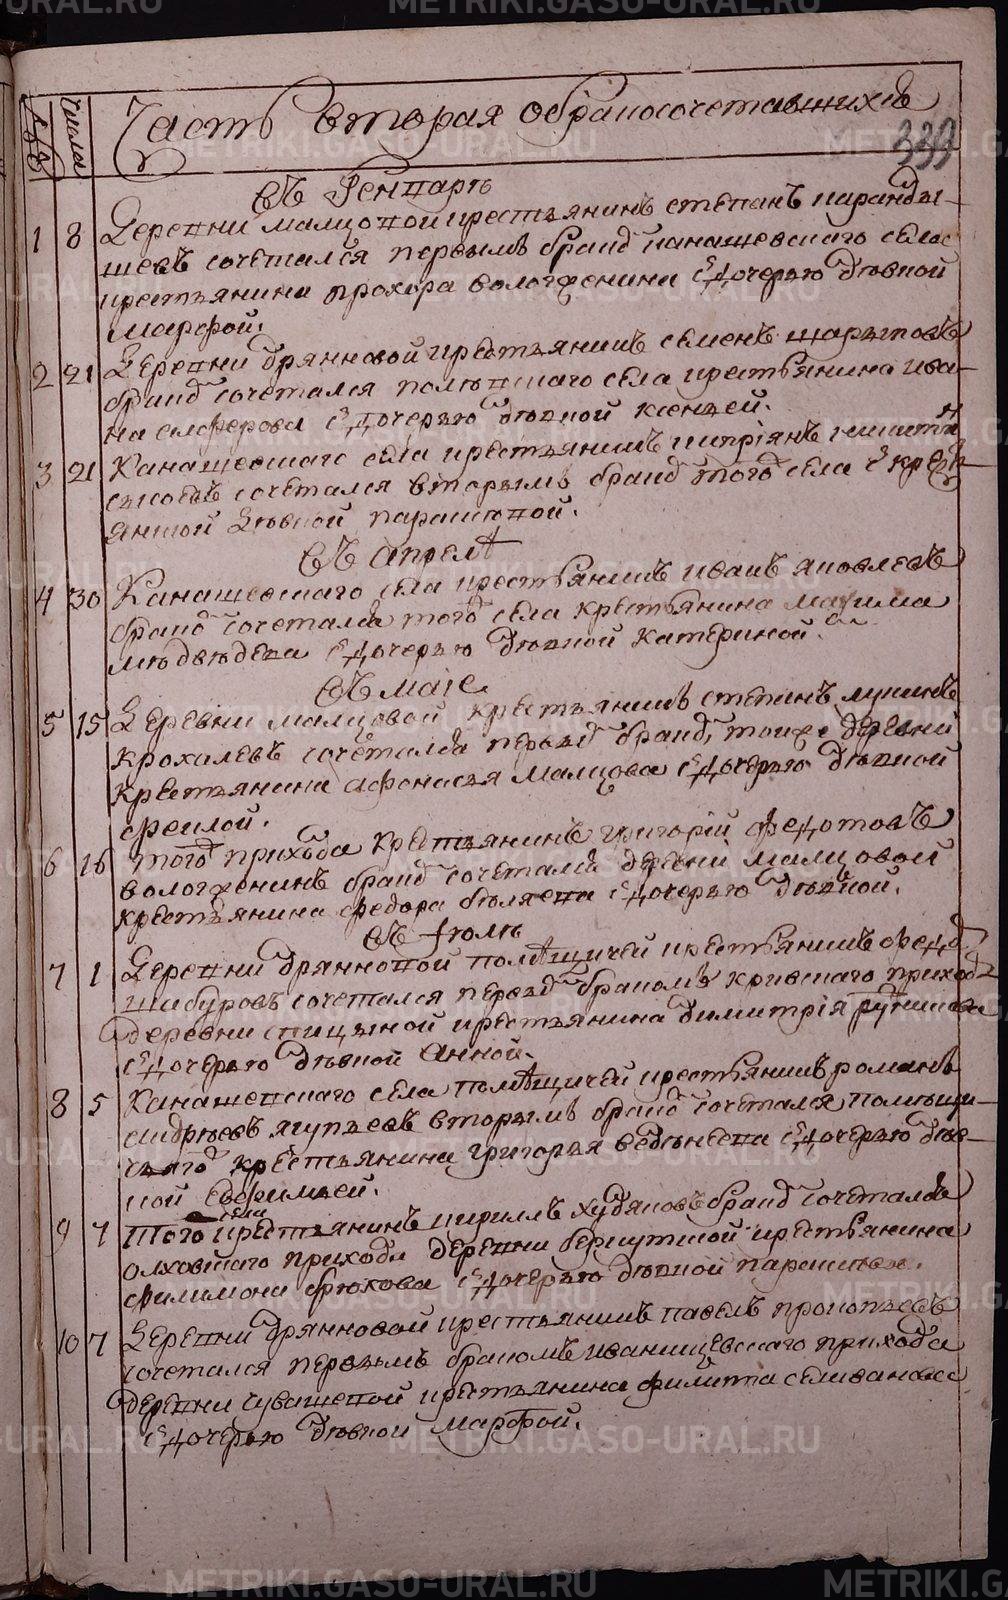 METRIKI.GASO-URAL.RU
Числа
Часть вторая обракосочетавшихся
339
въ Генваре
1 8 Деревни малцовой крестьянинъ степанъ каранды-
шевъ сочетался первымъ браком канашевскаго села
крестьянина прохора вологженина здочерью девкой
марфой.
2 21 Деревни дрянновой крестьянинъ семенъ шарыповъ
браком сочетался полевскаго села крестьянина ива-
на алферова здочерью девкой ксеньей.
3 21 Канашевскаго села крестьянинъ киприянъ
сысоевъ сочетался вторымъ браком того села скресть
янской девкой парасковой.
въ апреле
4 30 Канашевскаго села крестьянинъ иванъ яковлевъ
браком сочетался того села крестьянина максима
медведева здочерью девкой катериной.
въ маие
5 15 Деревни малцовой крестьянинъ степанъ лукинъ
крохалевъ сочетался первым браком тоиже деревни
крестьянина афонасья малцова здочерью девкой
феклой.
6 16 того прихода крестьянинъ григорий федотовъ
вологженинъ браком сочетался деревни малцовой
крестьянина федора беляева здочерью девкой.
въ июле
7 1 Деревни дрянновой помещичей крестьянинъ федор
шабуровъ сочетался первым бракомъ кривскаго прихода
деревни спицыной крестьянина димитрия
здочерью девкой анной.
8 5 Канашевскаго села помещичей крестьянинъ романъ
андреевъ ягупьевъ вторымъ браком сочетался помещи-
чьяго крестьянина григорья веденеева здочерью дев-
кой евфимьей.
9 7 Того села крестьянинъ кириллъ худяковъ браком сочетался
олховскаго прихода деревни беркутской крестьянина
филимона брюхова здочерью девкой парасковьей.
10 7 Деревни дрянновой крестьянинъ павелъ прокопьевъ
сочетался первымъ бракомъ иванищевскаго прихода
деревни чувашевой крестьянина филипа селиванова
здочерью девкой марфой.
METRIKI.GASO-URAL.RU